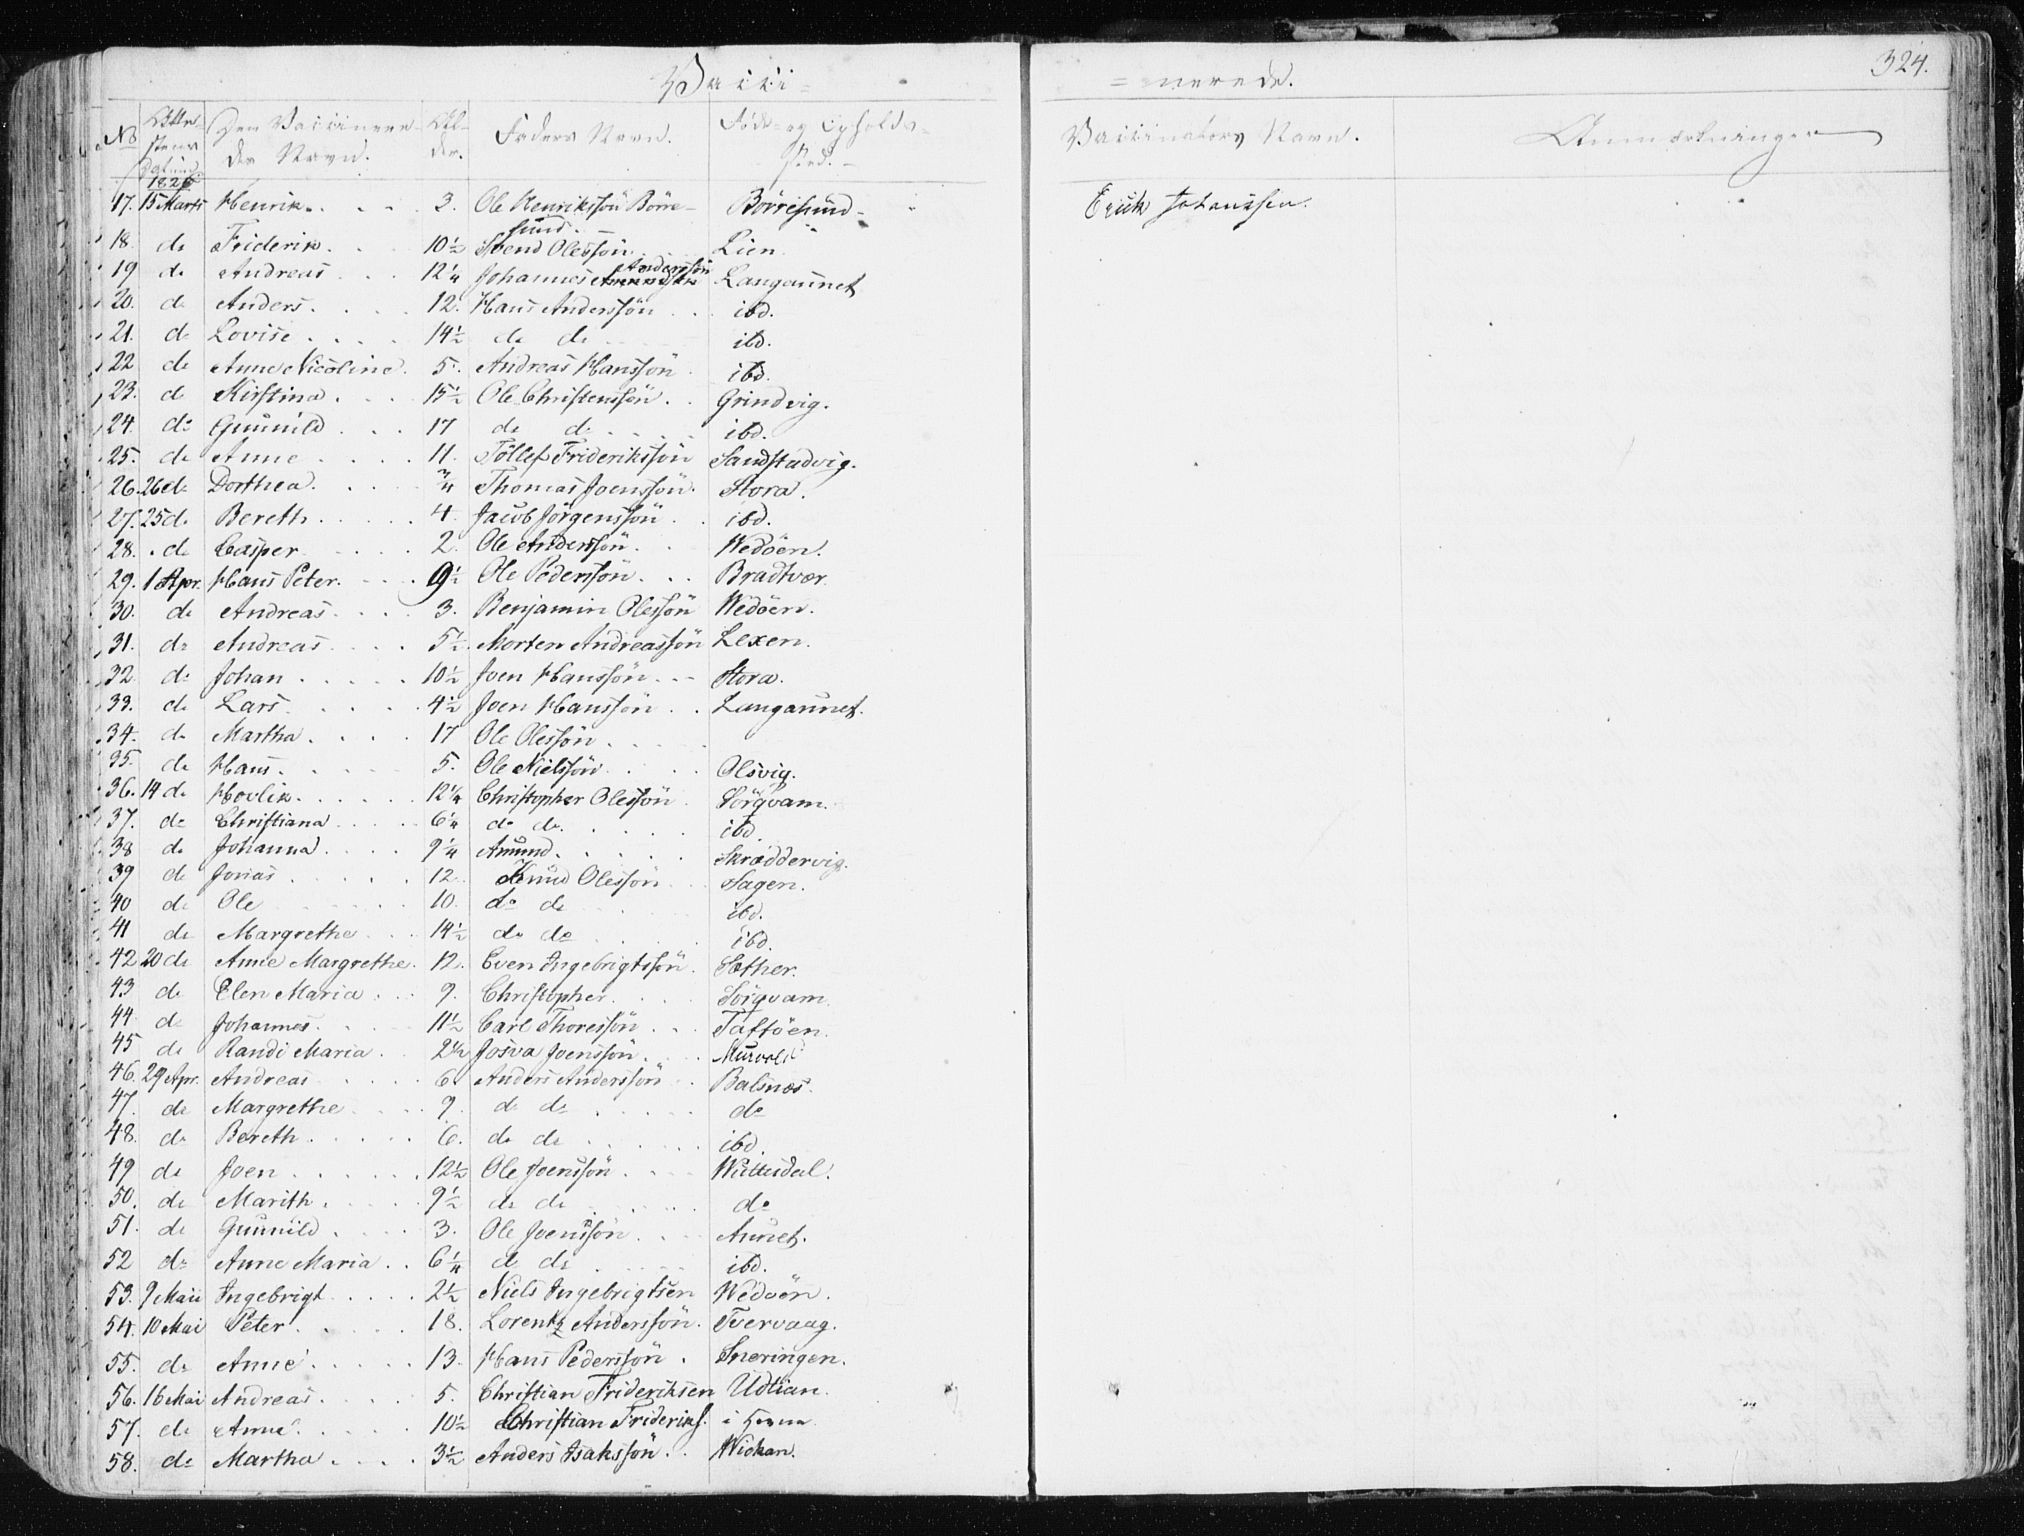 Vacci= =nerede. 324.
No Attestens Datum Den Vaccineredes Navn. Alder. Faders Navn. Føde- og Opholdssted. Vaccinators Navn. Anmærkninger
1826
17. 15 Marts Henrik 3. Ole Henrikssön Börre- Börresund Erich Johanssen.
sund.
18. do Friderik 10½ Svend Olessön Lien.
19 do Andreas 12¼ Johannes Anderssön Langaunet
20. do Anders 12. Hans Anderssön ibd.
21. do Lovise 14½ do do ibd.
22 do Anne Nicoline 5. Andreas Hanssön ibd.
23. do Kirstina 15½ Ole Christenssön Grindvig.
24. do Gunnild 17 do do ibd.
25. do Anne 11. Töllef Friderikssön Sandstadvig.
26. 26 do Dorthea ¾ Thomas Joenssön Stora.
27. 25 do Bereth 4. Jacob Jörgenssön ibd.
28. do Casper 2. Ole Anderssön Wedöen.
29. 1 Apr. Hans Peter 9½ Ole Pederssön Bradtvær.
30. do Andreas 3. Benjamin Olessön Wedöen.
31. do Andreas 5½ Morten Andreassön Lexen.
32 do Johan 10½ Joen Hanssön Stora.
33. do Lars 4½ Joen Hanssön Langaunet.
34. do Martha 17 Ole Olessön
35. do Hans 5. Ole Nielssön Olsvig.
36. 14 do Hovlik 12¼ Christopher Olessön Sörqvam.
37. do Christiana 6¼ do do ibd.
38 do Johanna 9¼ Amund Skræddervig.
39 do Jonas 12. Knud Olessön Sagen.
40 do Ole 10. do do ibd.
41 do Margrethe 14½ do do ibd.
42 20 do Anne Margrethe 12. Even Ingebrigtssön Sæther.
43 do Elen Maria 9. Christopher Sörqvam.
44 do Johannes 11½ Carl Thoressön Taftöen.
45 do Randi Maria 2½ Josva Joenssön Murvold
46. 29 Apr. Andreas 6. Anders Anderssön Balsnes.
47. do Margrethe 9. do do do
48. do Bereth 6. do do ibd.
49 do Joen 12½ Ole Joenssön Wuttudal.
50. do Marith 9½ do do do
51. do Gunnild 3. Ole Joenssön Aunet.
52 do Anne Maria 6¼ do do ibd.
53. 9 Maii Ingebrigt 2½ Niels Ingebrigtsen Wedöen.
54. 10 Mai Peter 18. Lorentz Anderssön Tvervaag.
55. do Anne 13. Hans Pederssön Sneringen.
56. 16 Mai Andreas 5. Christian Frideriksen Udtian.
57. do Anne 10½ Christian Frideriks. i
58. do Martha 3½ Anders Isakssön Wickan.